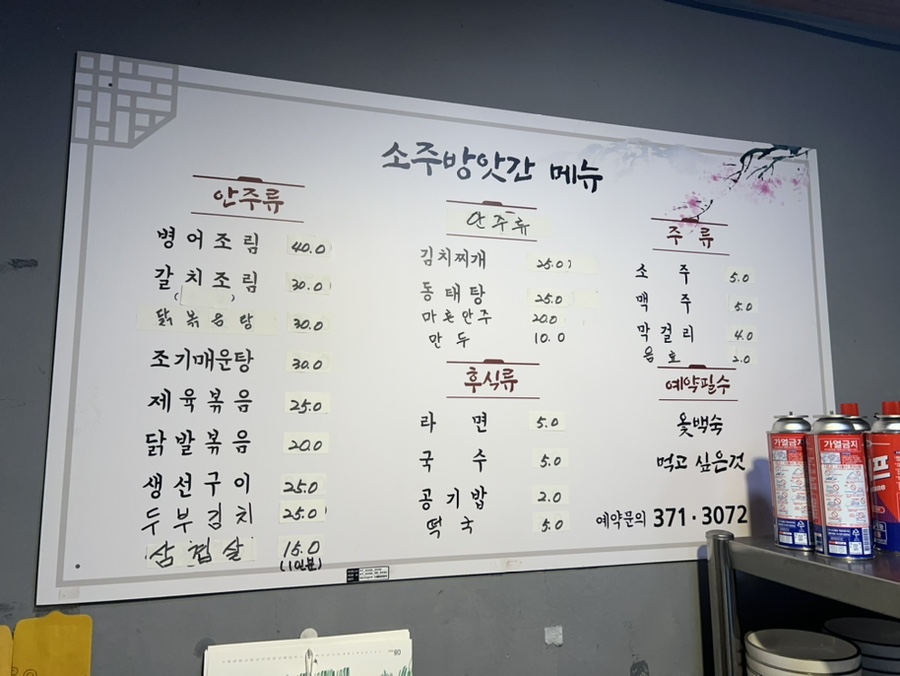 소주방앗간 메뉴
안주류
병어조림 40.0
갈치조림 30.0
닭볶음탕 30.0
조기매운탕 30.0
제육볶음 25.0
닭발볶음 20.0
생선구이 25.0
두부김치 25.0
삼겹살 15.0
(1인분)
안주류
김치찌개 25.0
동태탕 25.0
마른안주 20.0
만두 10.0
후식류
라면 5.0
국수 5.0
공기밥 2.0
떡국 5.0
주류
소주 5.0
맥주 5.0
막걸리 4.0
음료 2.0
예약필수
옻백숙
먹고 싶은것
예약문의 371·3072
가열금지
가열금지